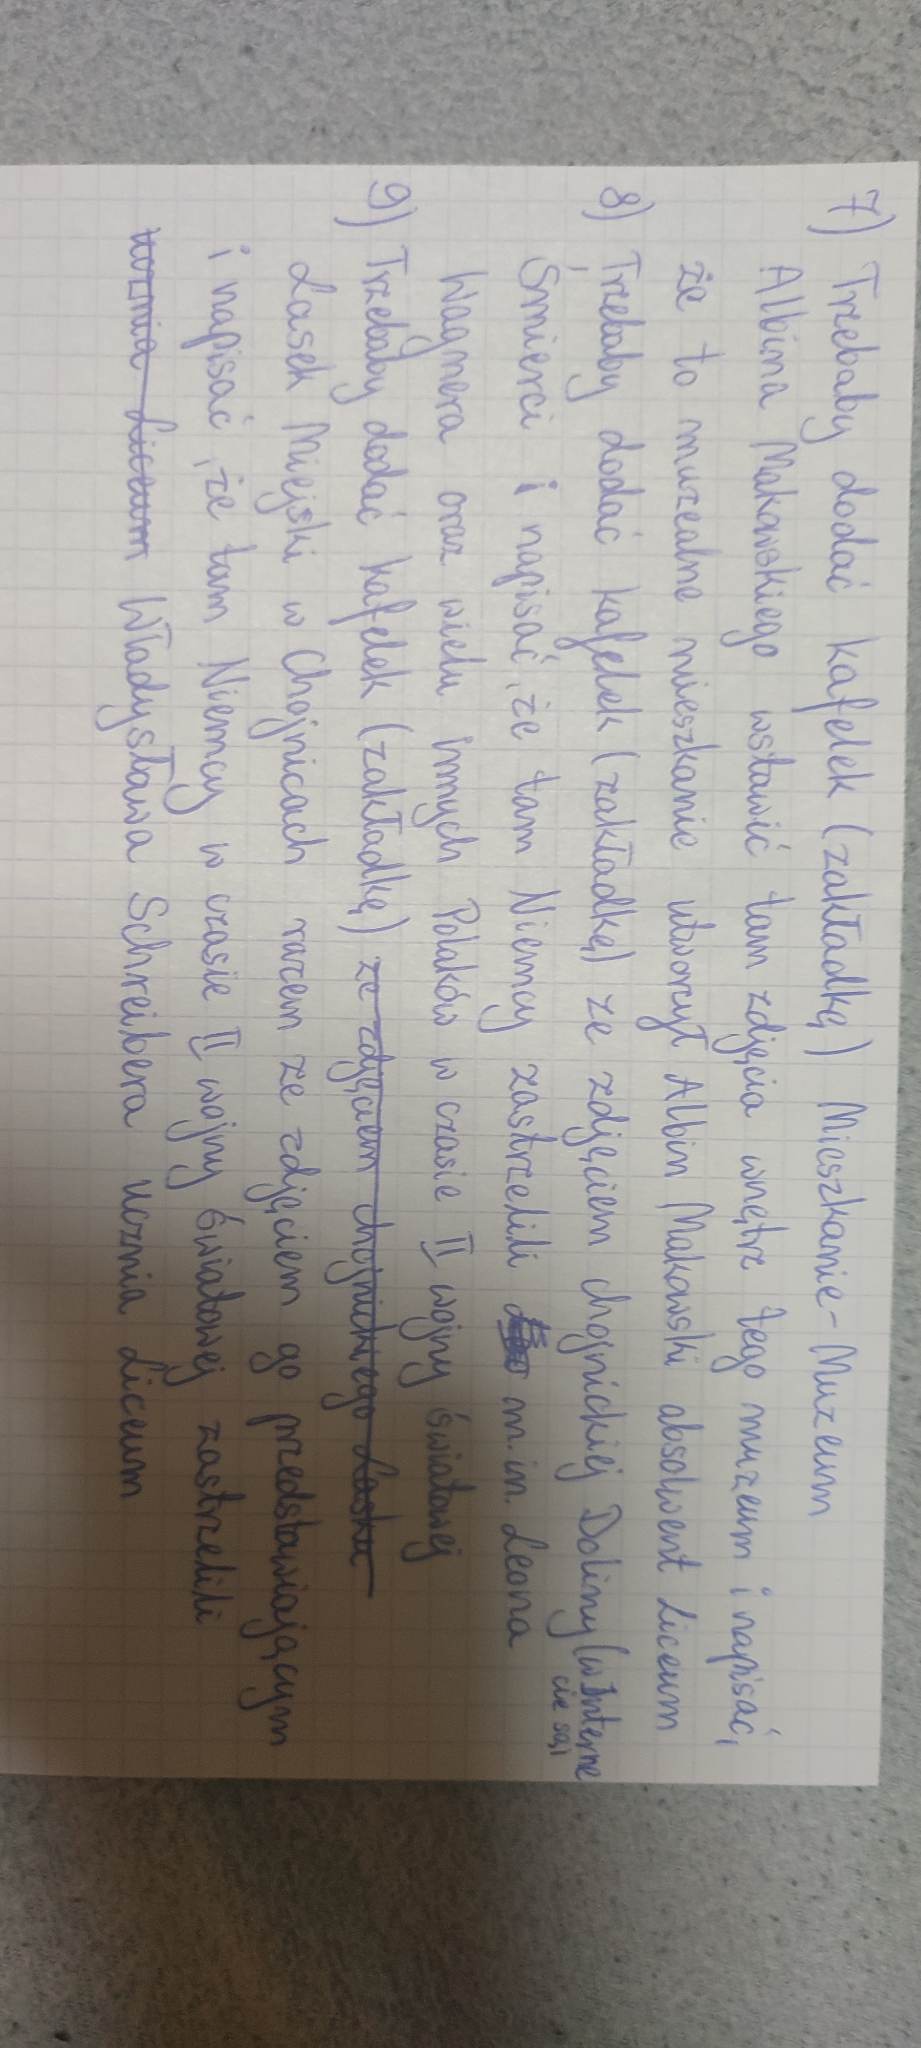 7) Trzebaby dodać kafelek (zakładkę) Mieszkanie-Muzeum
Albina Makowskiego wstawić tam zdjęcia wnętrz tego muzeum i napisać,
że to muzealne mieszkanie utworzył Albin Makowski absolwent Liceum
8) Trzebaby dodać kafelek (zakładkę) ze zdjęciem chojnickiej Doliny (w Interne
cie są)
Śmierci i napisać, że tam Niemcy zastrzelili m.in. Leona
Wagnera oraz wielu innych Polaków w czasie II wojny światowej
9) Trzebaby dodać kafelek (zakładkę) ze zdjęciem chojnickiego Lasku
Lasek Miejski w Chojnicach razem ze zdjęciem go przedstawiającym
i napisać, że tam Niemcy w czasie II wojny światowej zastrzelili
ucznia Liceum Władysława Schreibera ucznia Liceum